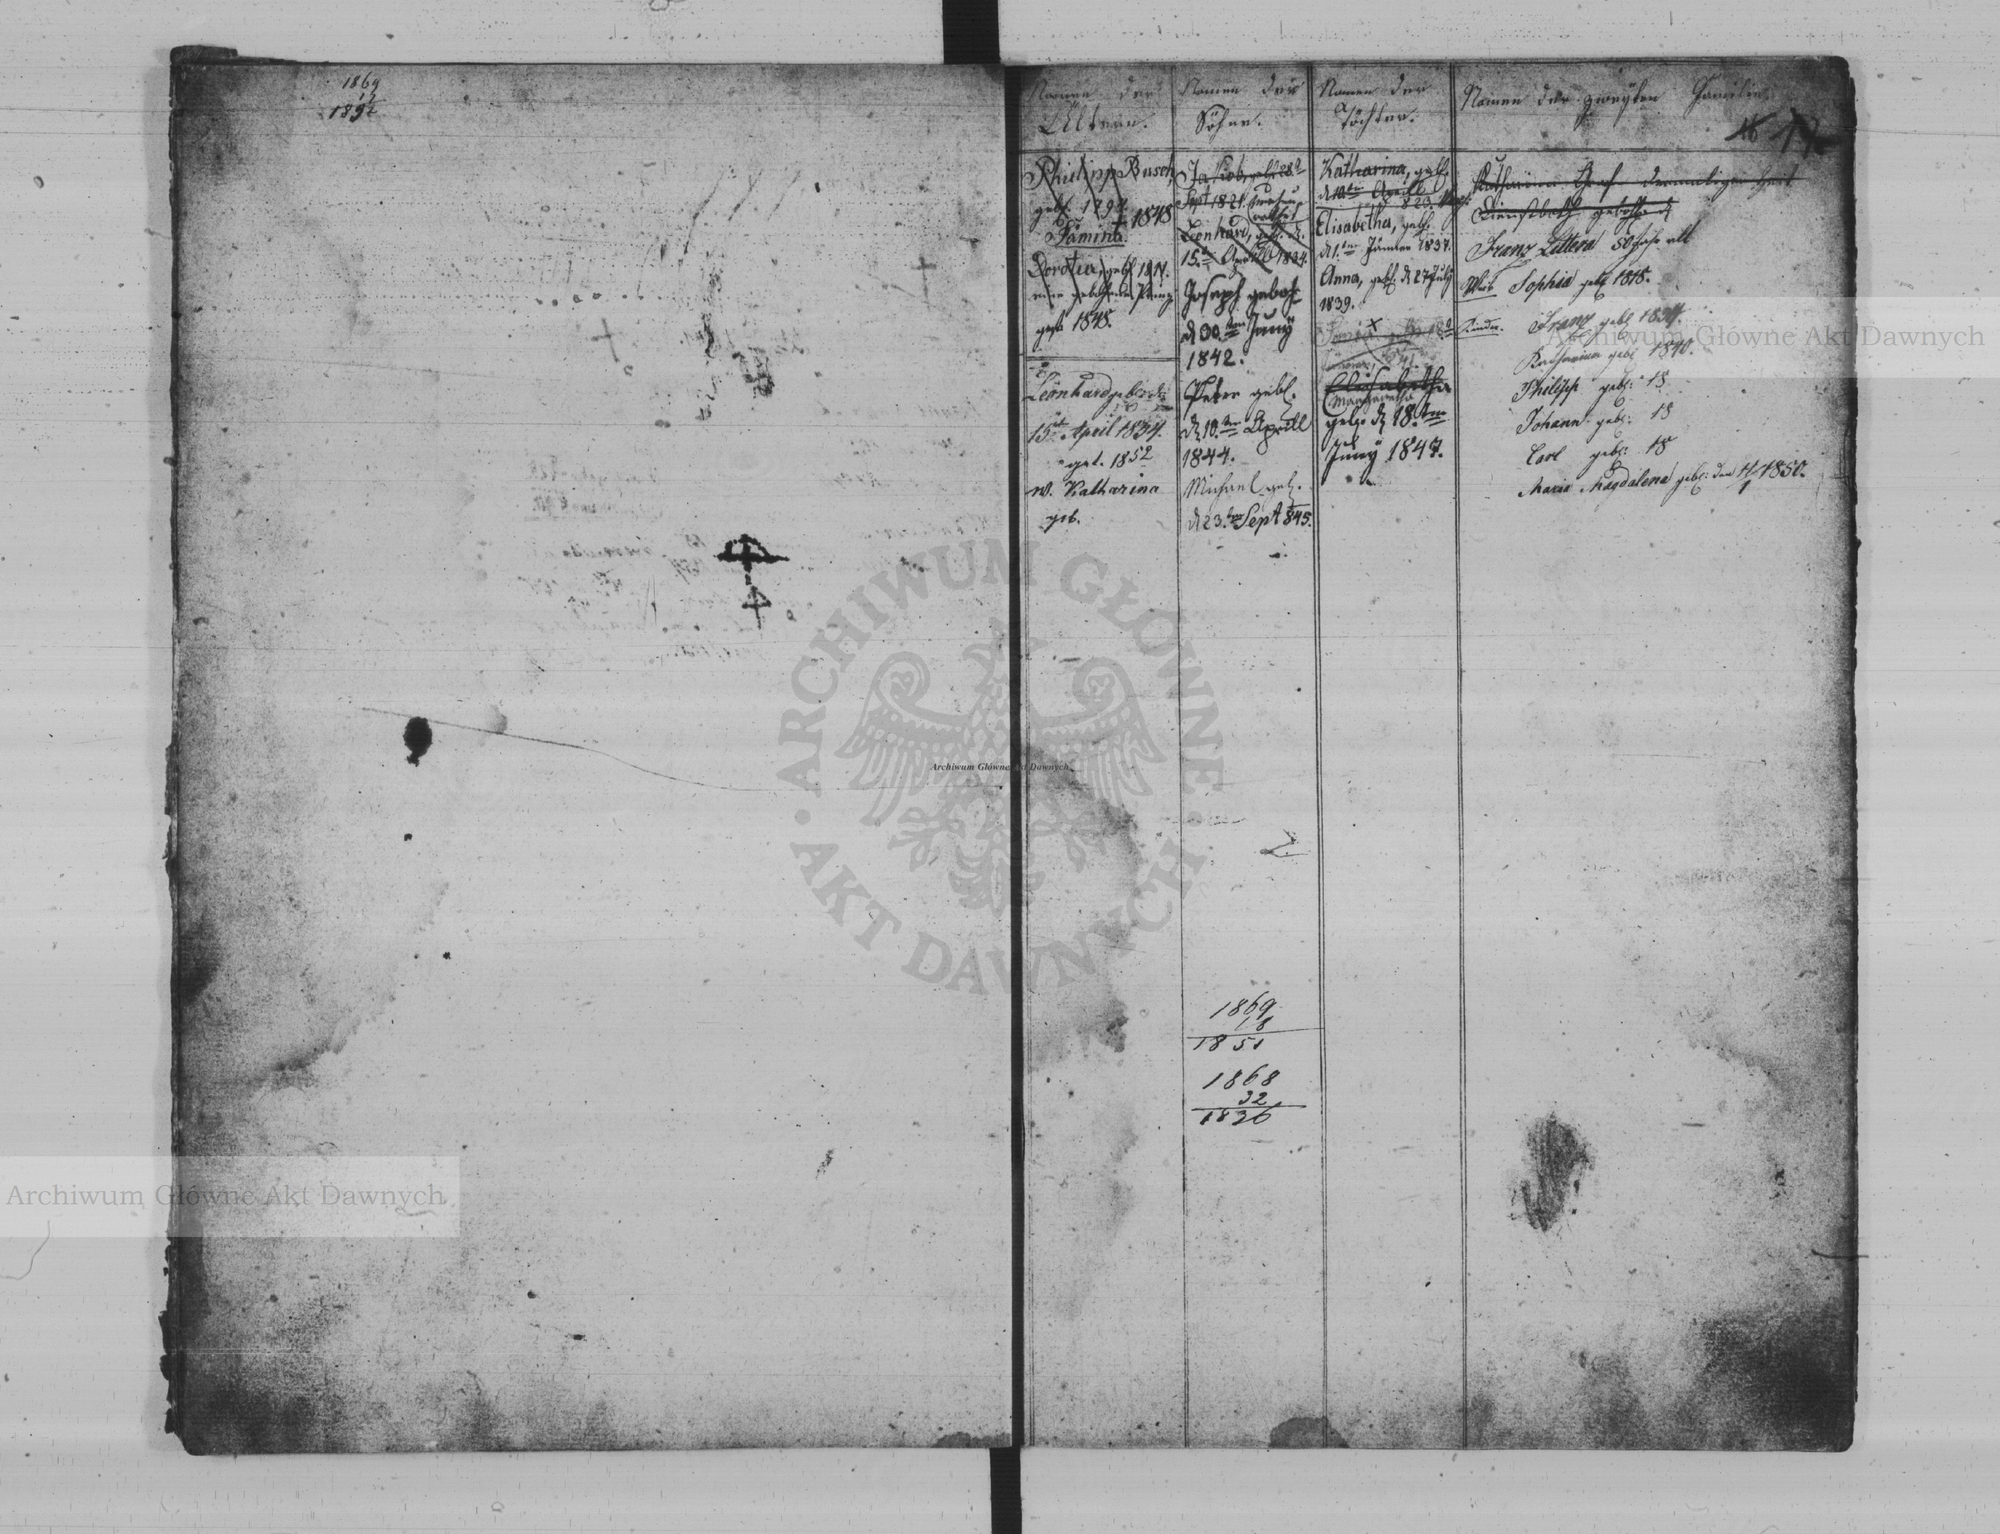 1869
17
1852
Namen der
Ältern.
Namen der
Söhne.
Namen der
Töchter.
Namen der zweyten Familie
16 17
Philipp Busch,
geb. 1794
† 1848
Dorothea, geb. 1814.
gest. 1848.
Leonhard geb. d.
15. April 1834.
get. 1852
w. Katharina
geb.
Jakob, geb. 28
Sept 1821.
Leonhard, geb. d.
15. April 1834.
Joseph geboh.
d 30.ten Juny
1842.
Peter geb.
d 10.ten Aprill
1844.
Michael geb.
d 23.ten Sept 1845.
Katharina, geb.
d 10ten Aprill
Elisabetha, geb.
d 1.ten Jänner 1837.
Anna, geb. d 27 July
1839.
Elisabetha
Margaretha
geb. d 18.ten
Juny 1847.
Katharina Graf
Franz Littera 50 Jahr alt
Weib Sophia geb 1818.
Kinder. Franz geb 1837.
Katharina geb 1840.
Philipp geb: 18
Johann geb: 18
Carl geb: 18
Maria Magdalena geb: den 4/1 1850.
1869
18
1851
1868
32
1836
ARCHIWUM GŁÓWNE
AKT DAWNYCH
Archiwum Główne Akt Dawnych
Archiwum Główne Akt Dawnych
Archiwum Główne Akt Dawnych